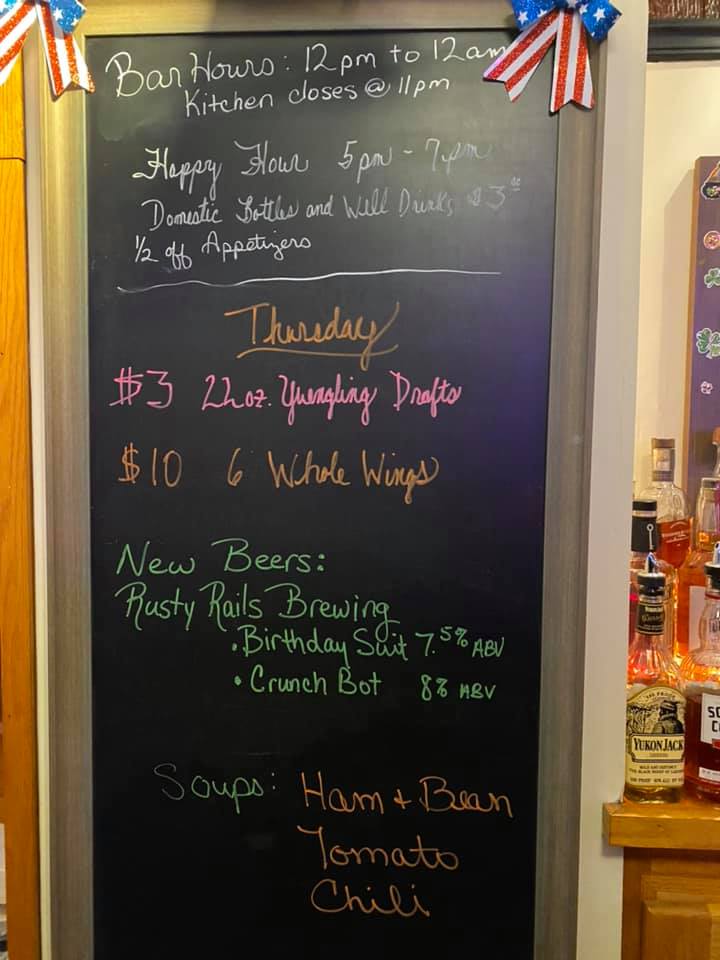 Bar Hours: 12pm to 12am
Kitchen closes @ 11pm
Happy Hour 5pm - 7pm
Domestic Bottles and Well Drinks $3.00
1/2 off Appetizers
Thursday
$3 22oz. Yuengling Drafts
$10 6 Whole Wings
New Beers:
Rusty Rails Brewing
• Birthday Suit 7.5% ABV
• Crunch Bot 8% ABV
Soups: Ham + Bean
Tomato
Chili
YUKON JACK